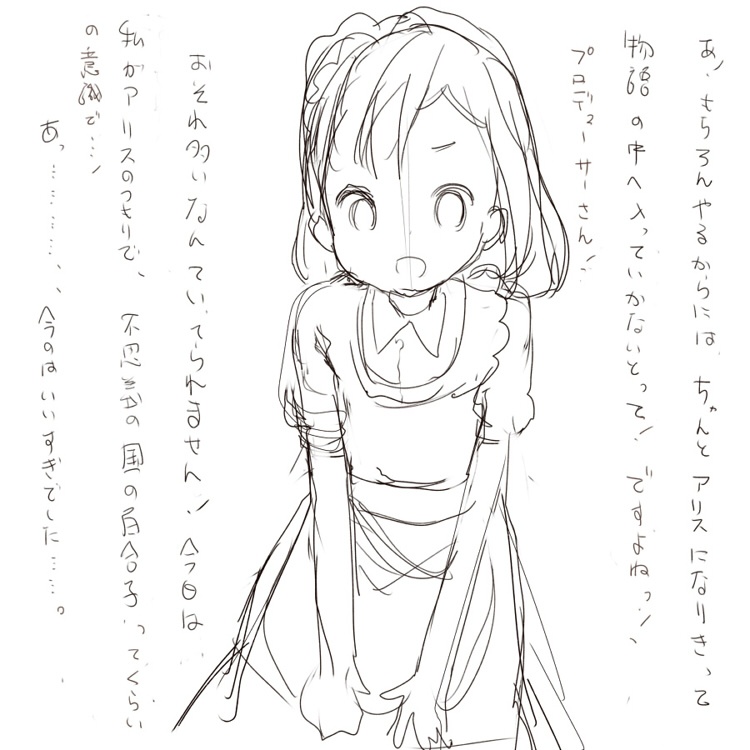 あ、もちろんやるからには、ちゃんとアリスになりきって
物語の中へ入っていかないとって! ですよねっ!、
プロデューサーさん!
おそれ多いなんていってられません! 今日は
私がアリスのつもりで、不思議の国の百合子ってくらい
の意識で…!
あっ…………、、今のはいいすぎでした……。